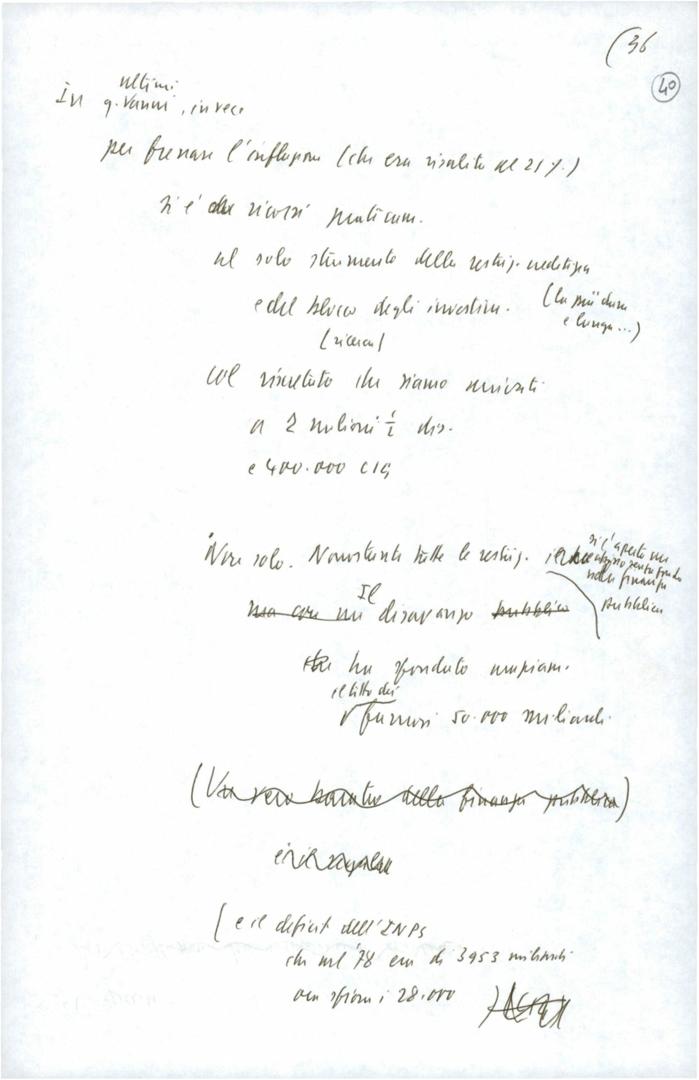 (36
40
ultimi
In q. vanni, invece
per frenare l'inflazione (che era risalita al 21%)
si è ricorsi praticam.
al solo strumento della restriz. creditizia
e del blocco degli investim. (la più dura
e lunga...)
col risultato che siamo arrivati
a 2 milioni ½ dis.
e 400.000 CIG
Non solo. Nonostante tutte le restriz. si è aperta una
senza fondo
nella finanza
pubblica
Il
ma con un disavanzo pubblico
che ha sfondato ampiam.
il tetto dei
famosi 50.000 miliardi.
(Un vero della finanza pubblica)
(e il deficit dell'INPS
che nel '78 era di 3953 miliardi
ora sfiora i 28.000